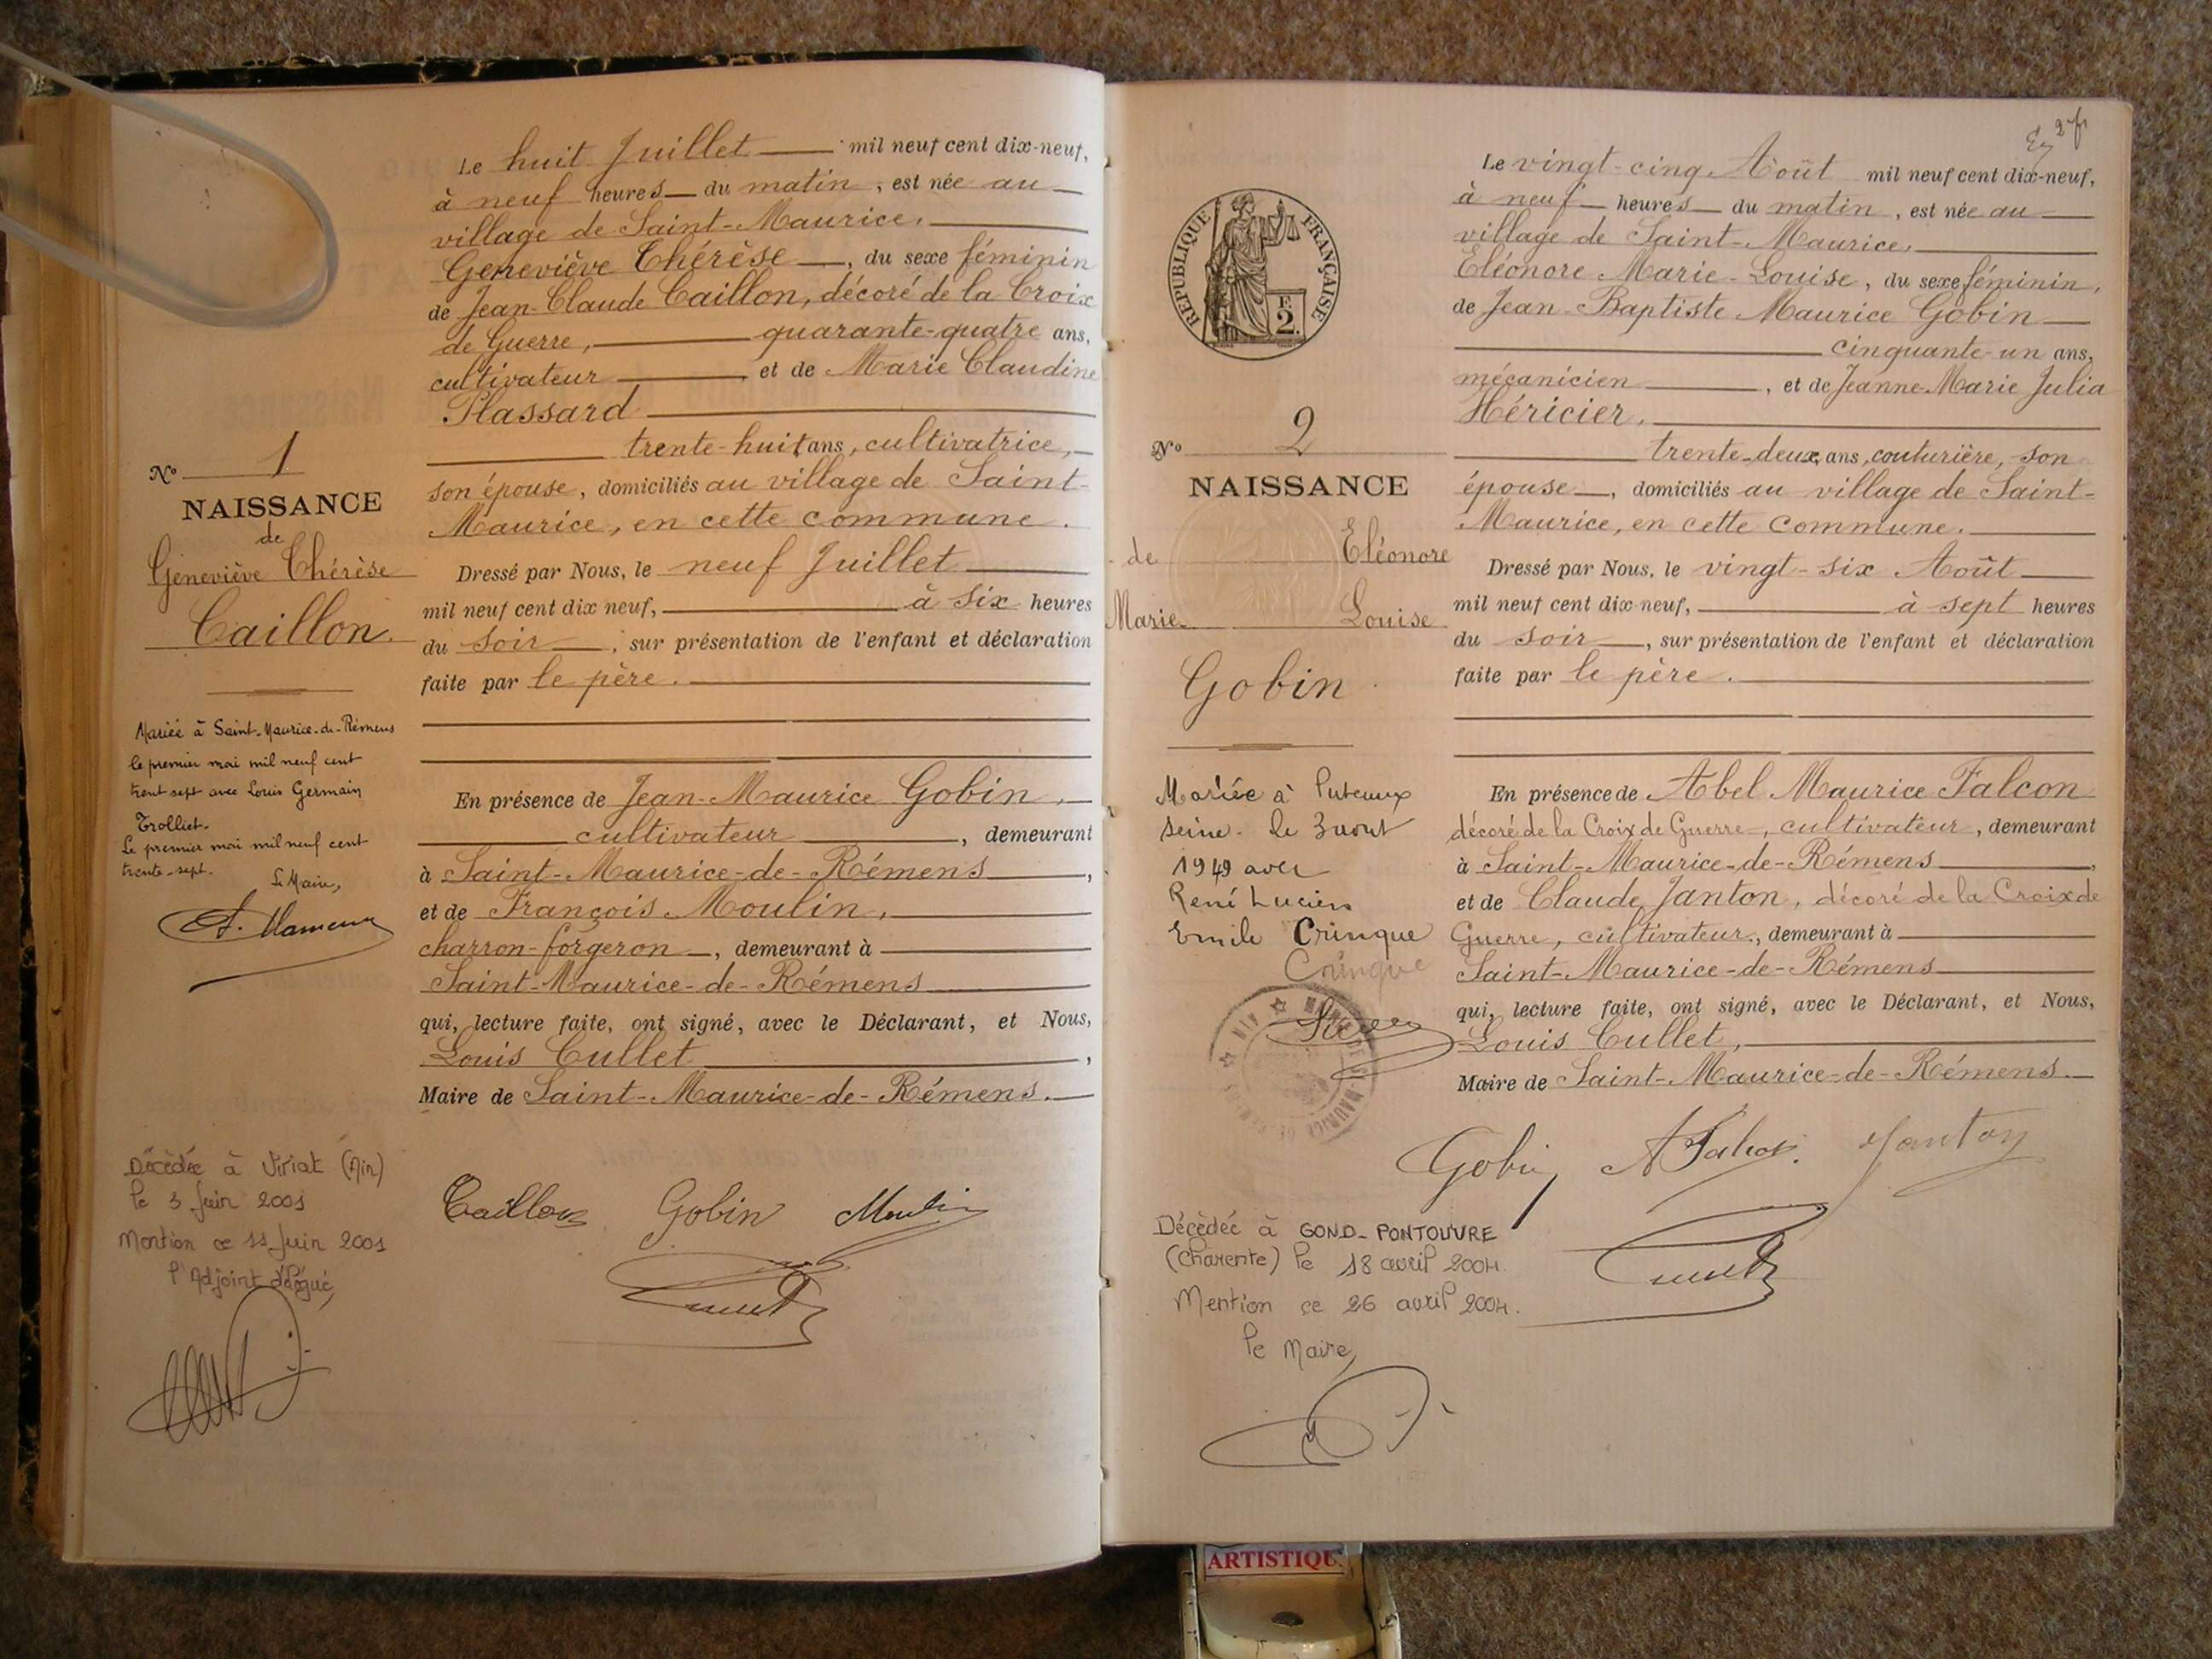 Le huit Juillet mil neuf cent dix-neuf,
à neuf heures du matin, est née au
village de Saint-Maurice.
Geneviève Thérèse, du sexe féminin
de Jean-Claude Caillon, décoré de la Croix
de Guerre, quarante-quatre ans,
cultivateur et de Marie Claudine
Plassard
trente-huit ans, cultivatrice,
son épouse, domiciliés au village de Saint-
Maurice, en cette commune.
Dressé par Nous, le neuf Juillet
mil neuf cent dix neuf, à six heures
du soir, sur présentation de l'enfant et déclaration
faite par le père.
En présence de Jean-Maurice Gobin,
cultivateur, demeurant
à Saint-Maurice-de-Rémens,
et de François Moulin,
charron-forgeron, demeurant à
Saint-Maurice-de-Rémens
qui, lecture faite, ont signé, avec le Déclarant, et Nous,
Louis Cullet,
Maire de Saint-Maurice-de-Rémens.
Caillon Gobin Moulin
No 1
NAISSANCE
de
Geneviève Thérèse
Caillon.
Mariée à Saint-Maurice-de-Rémens
le premier mai mil neuf cent
trent sept avec Louis Germain
Trolliet.
Le premier mai mil neuf cent
trente-sept.
Le Maire,
Décédée à Viriat (Ain)
le 3 Juin 2001
Mention ce 11 Juin 2001
l'Adjoint délégué,
RÉPUBLIQUE FRANÇAISE
F.
2.
No 2
NAISSANCE
de Eléonore
Marie Louise
Gobin
Mariée à Puteaux
Seine. le 3 aout
1949 avec
René Lucien
Emile Crinque
Crinque
Décédée à GOND-PONTOUVRE
(Charente) le 18 avril 2004.
Mention ce 26 avril 2004.
le Maire,
2
Le vingt-cinq Août mil neuf cent dix-neuf,
à neuf heures du matin, est née au
village de Saint-Maurice,
Eléonore Marie-Louise, du sexe féminin,
de Jean-Baptiste Maurice Gobin
cinquante-un ans,
mécanicien, et de Jeanne-Marie Julia
Héricier.
trente-deux ans, couturière, son
épouse, domiciliés au village de Saint-
Maurice, en cette commune.
Dressé par Nous, le vingt-six Août
mil neuf cent dix-neuf, à sept heures
du soir, sur présentation de l'enfant et déclaration
faite par le père.
En présence de Abel Maurice Falcon
décoré de la Croix de Guerre, cultivateur, demeurant
à Saint-Maurice-de-Rémens,
et de Claude Janton, décoré de la Croix de
Guerre, cultivateur, demeurant à
Saint-Maurice-de-Rémens
qui, lecture faite, ont signé, avec le Déclarant, et Nous,
Louis Cullet,
Maire de Saint-Maurice-de-Rémens.
Gobin A Falcon Janton
ARTISTIQU